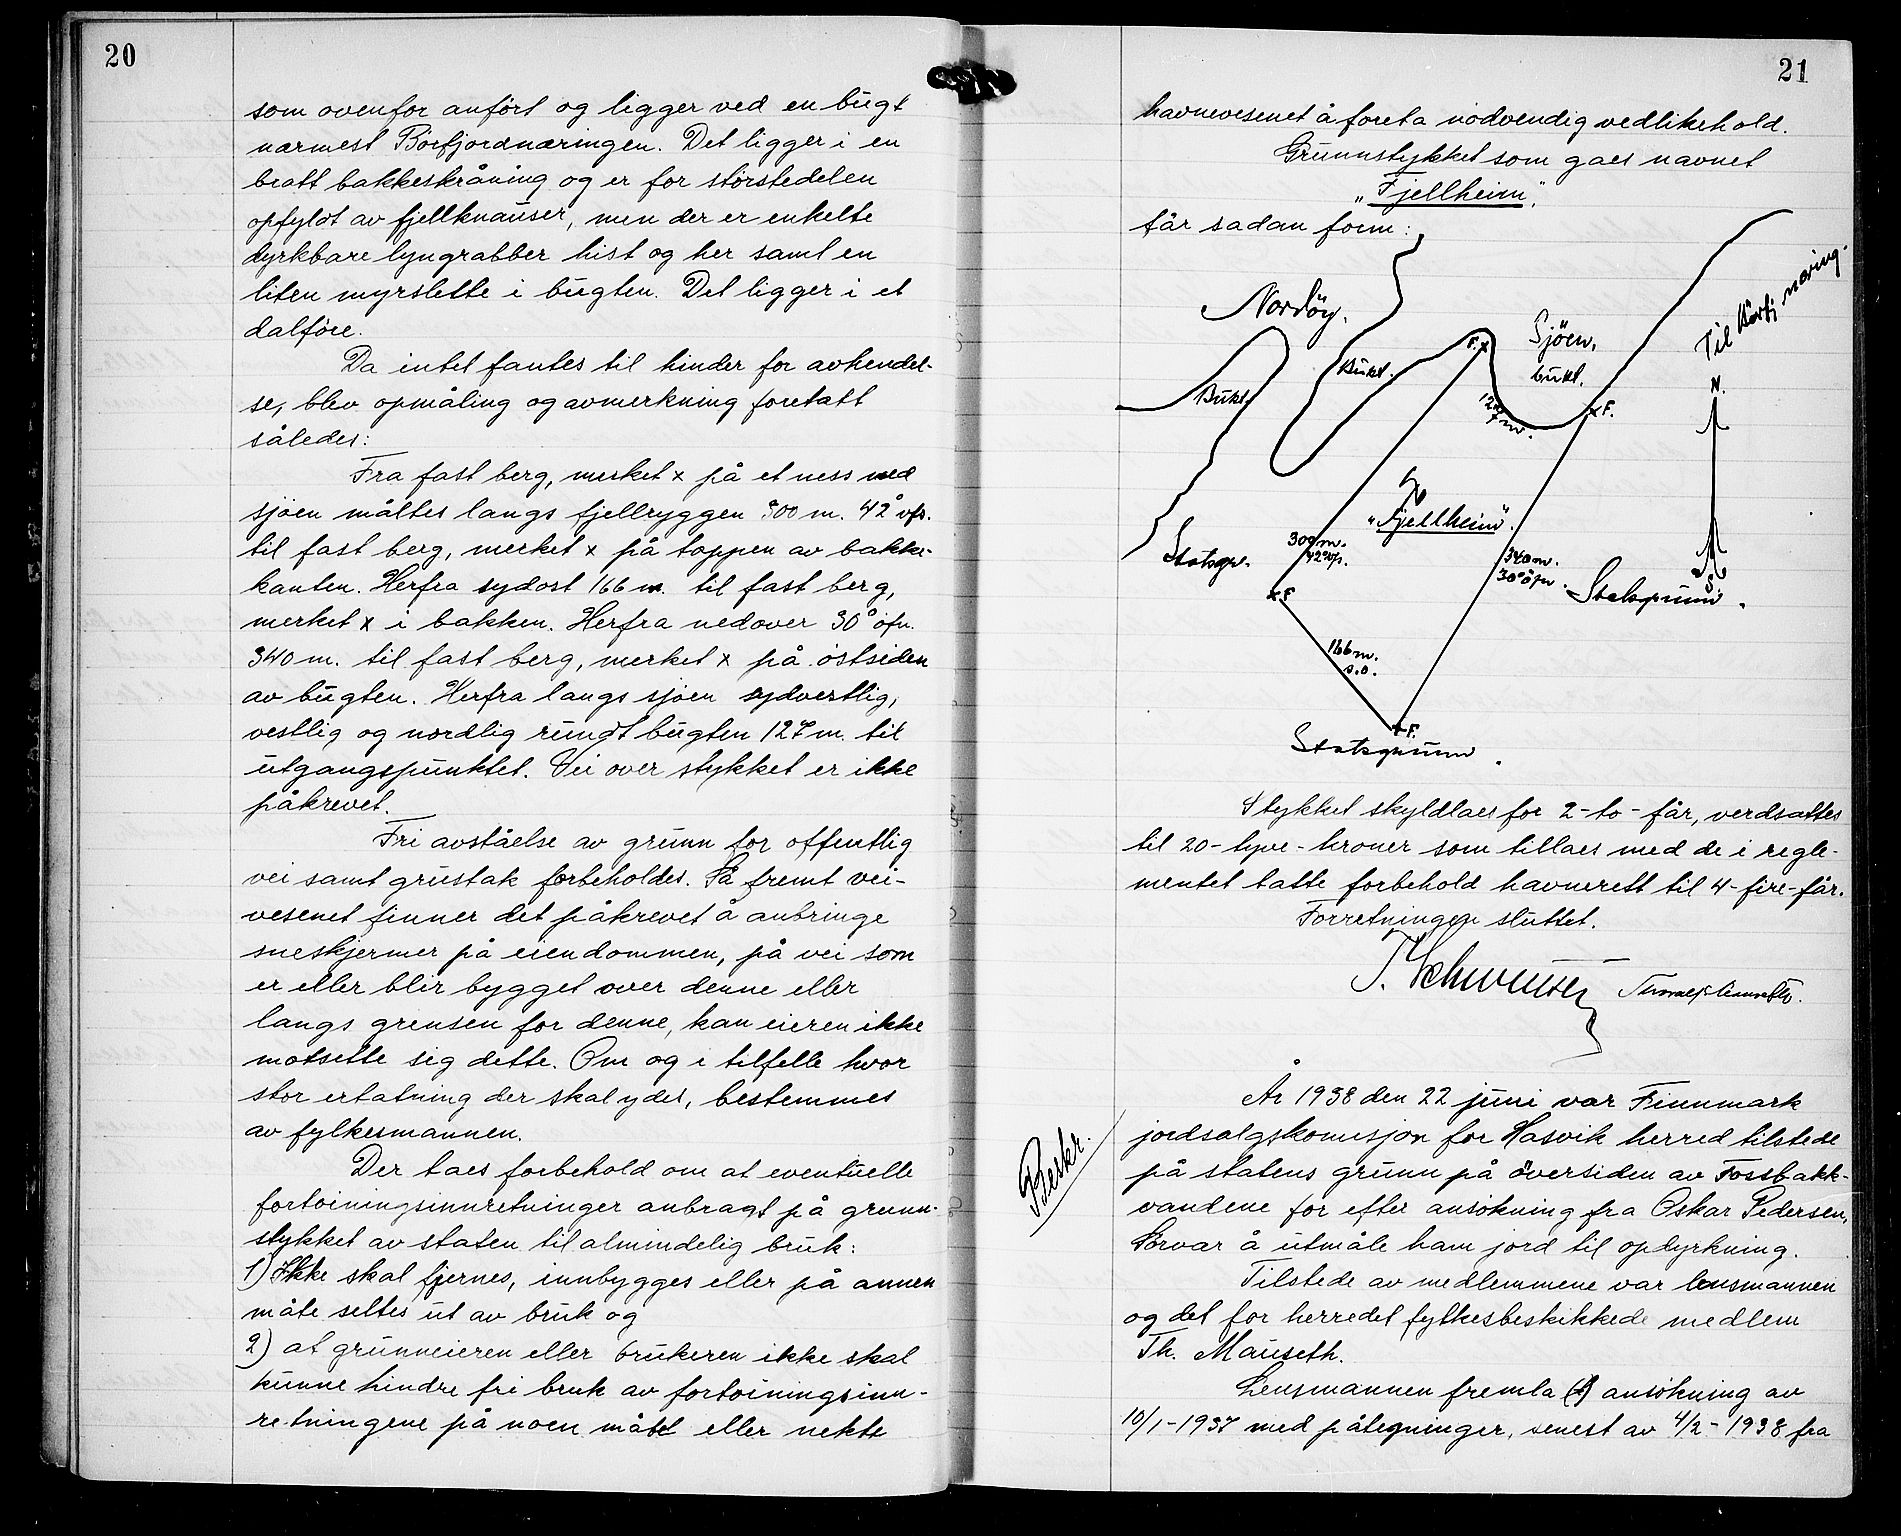 20
som ovenfor anført og ligger ved en bugt
nærmest Börfjordnæringen. Det ligger i en
bratt bakkeskråning og er for störstedelen
opfyldt av fjellknauser, men der er enkelte
dyrkbare lyngrabber hist og her samt en
liten myrslette i bugten. Det ligger i et
dalföre.
Da intet fantes til hinder for avhendel-
se, blev opmåling og avmerkning foretatt
således:
Fra fast berg, merket x på et ness ved
sjöen måltes langs fjellryggen 300 m. 42° vfs.
til fast berg, merket x på toppen av bakke-
kanten. Herfra sydost 166 m. til fast berg,
merket x i bakken. Herfra nedover 30° öfn.
340 m. til fast berg, merket x på östsiden
av bugten. Herfra langs sjöen sydvestlig,
vestlig og nordlig rundt bugten 127 m. til
utgangspunktet. Vei over stykket er ikke
påkrevet.
Fri avståelse av grunn for offentlig
vei samt grustak forbeholdes. Så fremt vei-
vesenet finner det påkrevet å anbringe
sneskjermer på eiendommen, på vei som
er eller blir bygget over denne eller
langs grensen for denne, kan eieren ikke
motsette sig dette. Om og i tilfelle hvor
stor ertatning der skal ydes, bestemmes
av fylkesmannen.
Der taes forbehold om at eventuelle
fortöiningsinnretninger anbragt på grunn-
stykket av staten til almindelig bruk:
1) Ikke skal fjernes, innbygges eller på annen
måte settes ut av bruk og
2) at grunneieren eller brukeren ikke skal
kunne hindre fri bruk av fortöiningsinn-
retningene på noen måte eller nekte
21
havnevesenet å foreta nödvendig vedlikehold.
Grunnstykket som gaes navnet
"Fjellheim",
får sadan form:
Nordöy.
Bukt
Bukt.
Sjöen,
bukt.
Til Börfj. næring.
N.
F. x
127 m.
x F.
"Fjellheim".
Statsgr.
300 m.
42° vfs.
340 m.
30° öfn.
Statsgrunn.
S.
x F.
166 m.
s.o.
x F.
Statsgrunn.
Stykket skyldlaes for 2-to-får, verdsattes
til 20-tyve-kroner som tillaes med de i regle-
mentet tatte forbehold havnerett til 4-fire-får.
Forretningen sluttet.
År 1938 den 22 juni var Finnmark
jordsalgskomisjon for Hasvik herred tilstede
på statens grunn på översiden av Fossbakk-
vandene for efter ansökning fra Oskar Pedersen,
Sörvær å utmåle ham jord til opdyrkning.
Beskr.
Tilstede av medlemmene var lensmannen
og det for herredet fylkesbeskikkede medlem
Th. Mauseth.
Lensmannen fremla (1) ansökning av
10/1-1937 med påtegninger, senest av 4/2-1938 fra